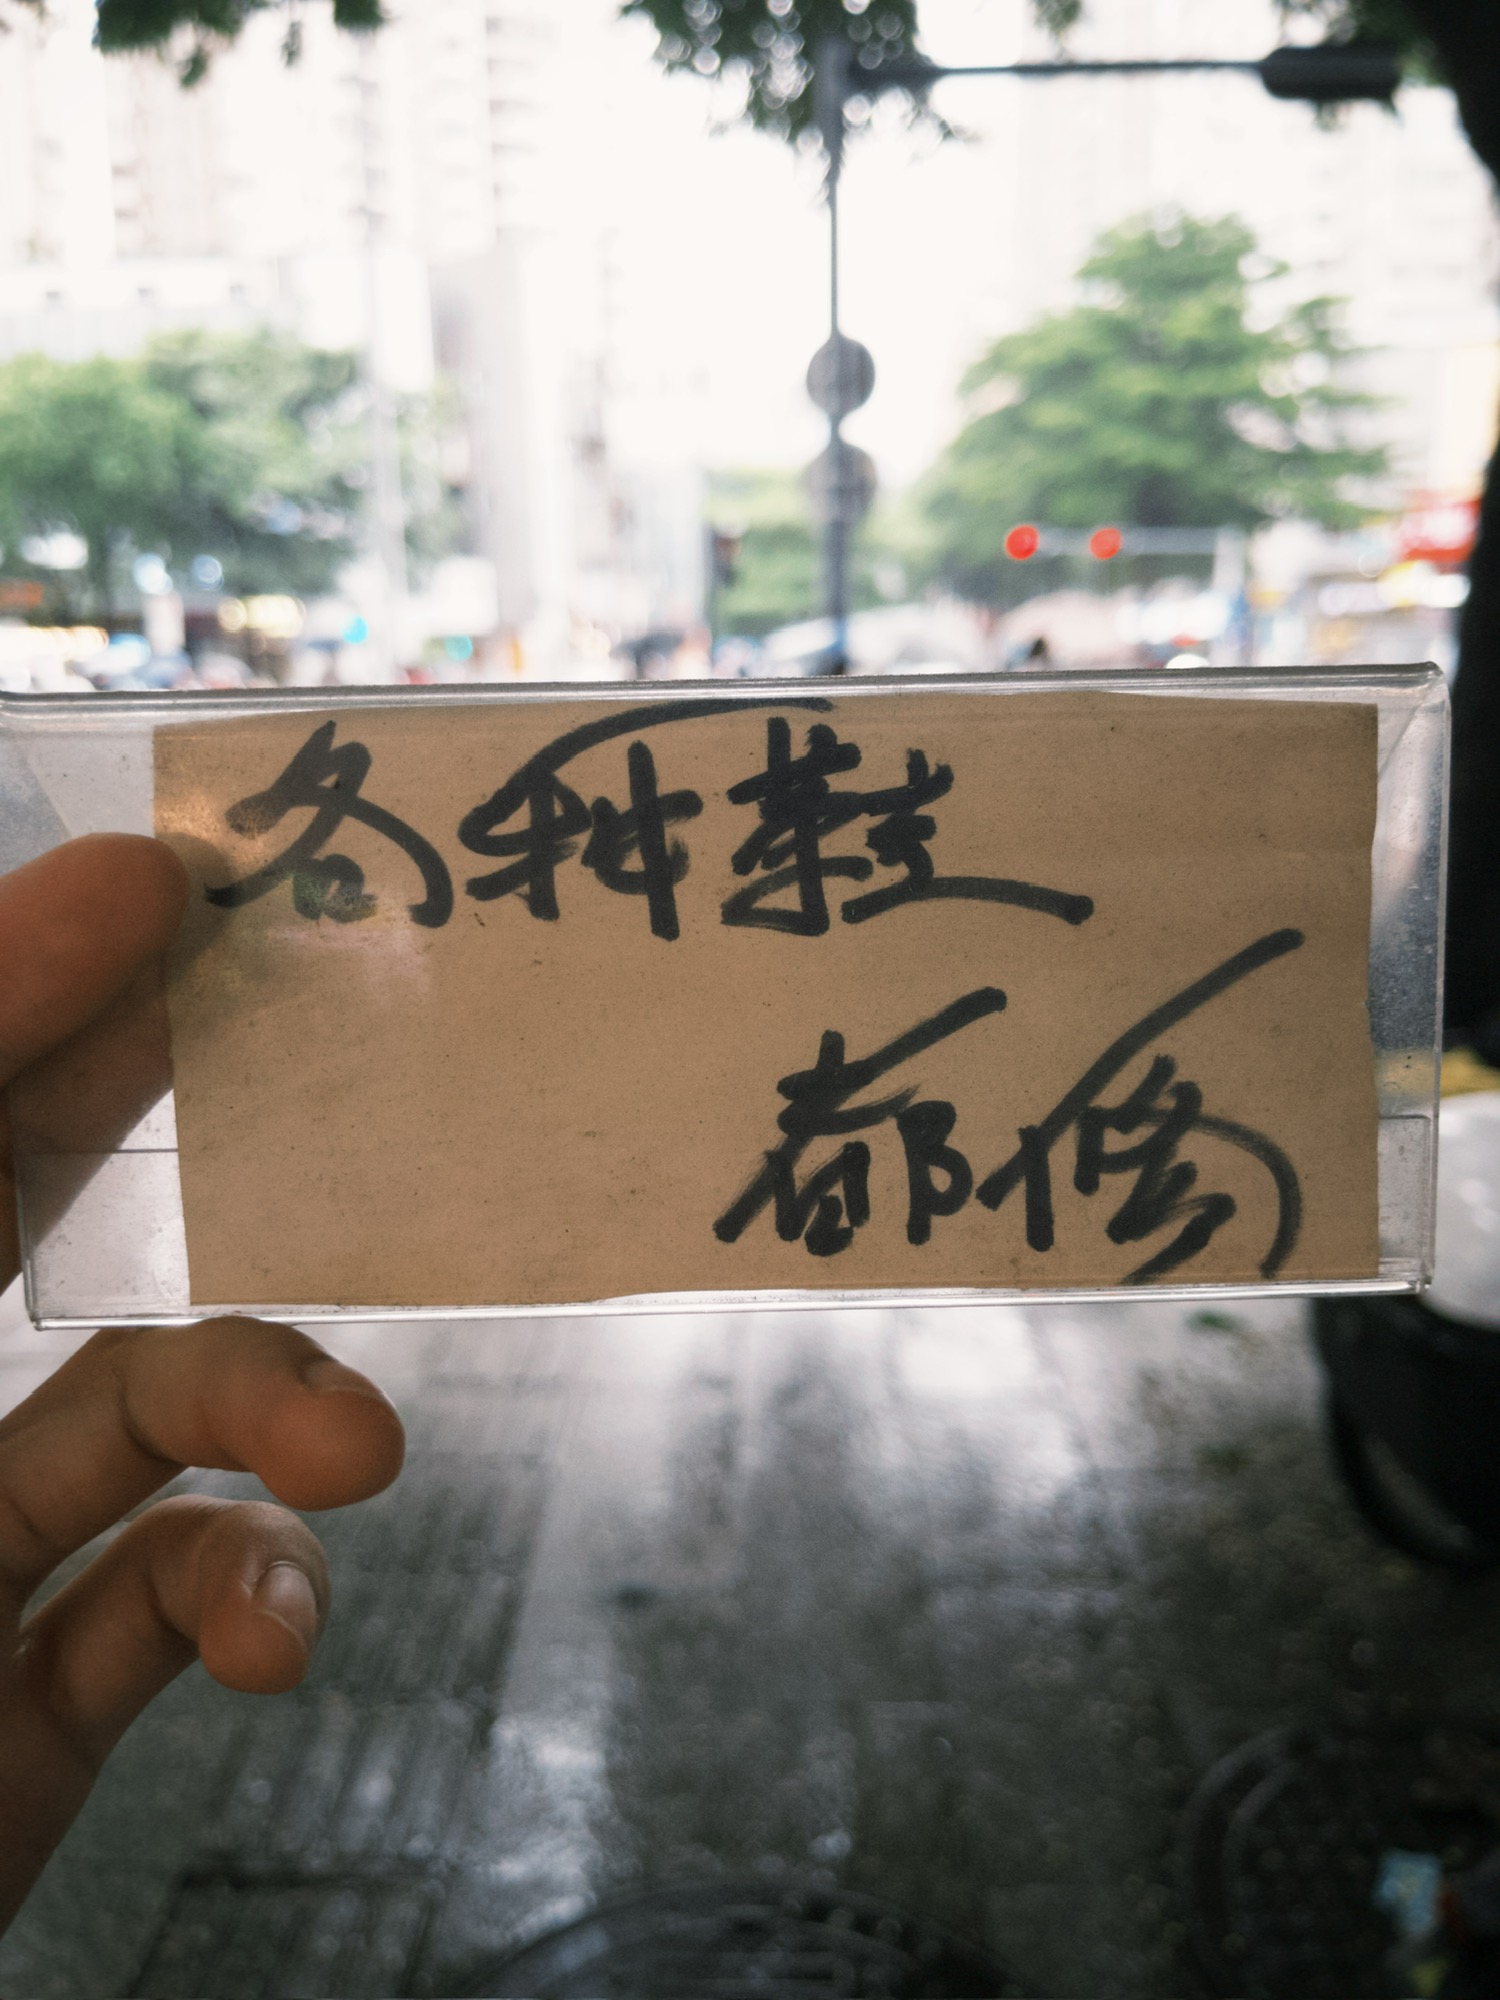 各种鞋
都修